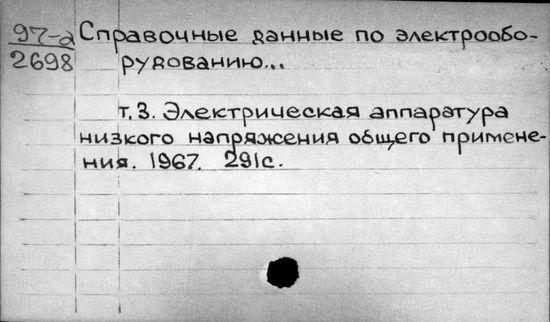 97-а Справочные данные по электрообо-
2698 рудованию...
т. 3. Электрическая аппаратура
низкого напряжения общего примене-
ния. 1967. 291с.